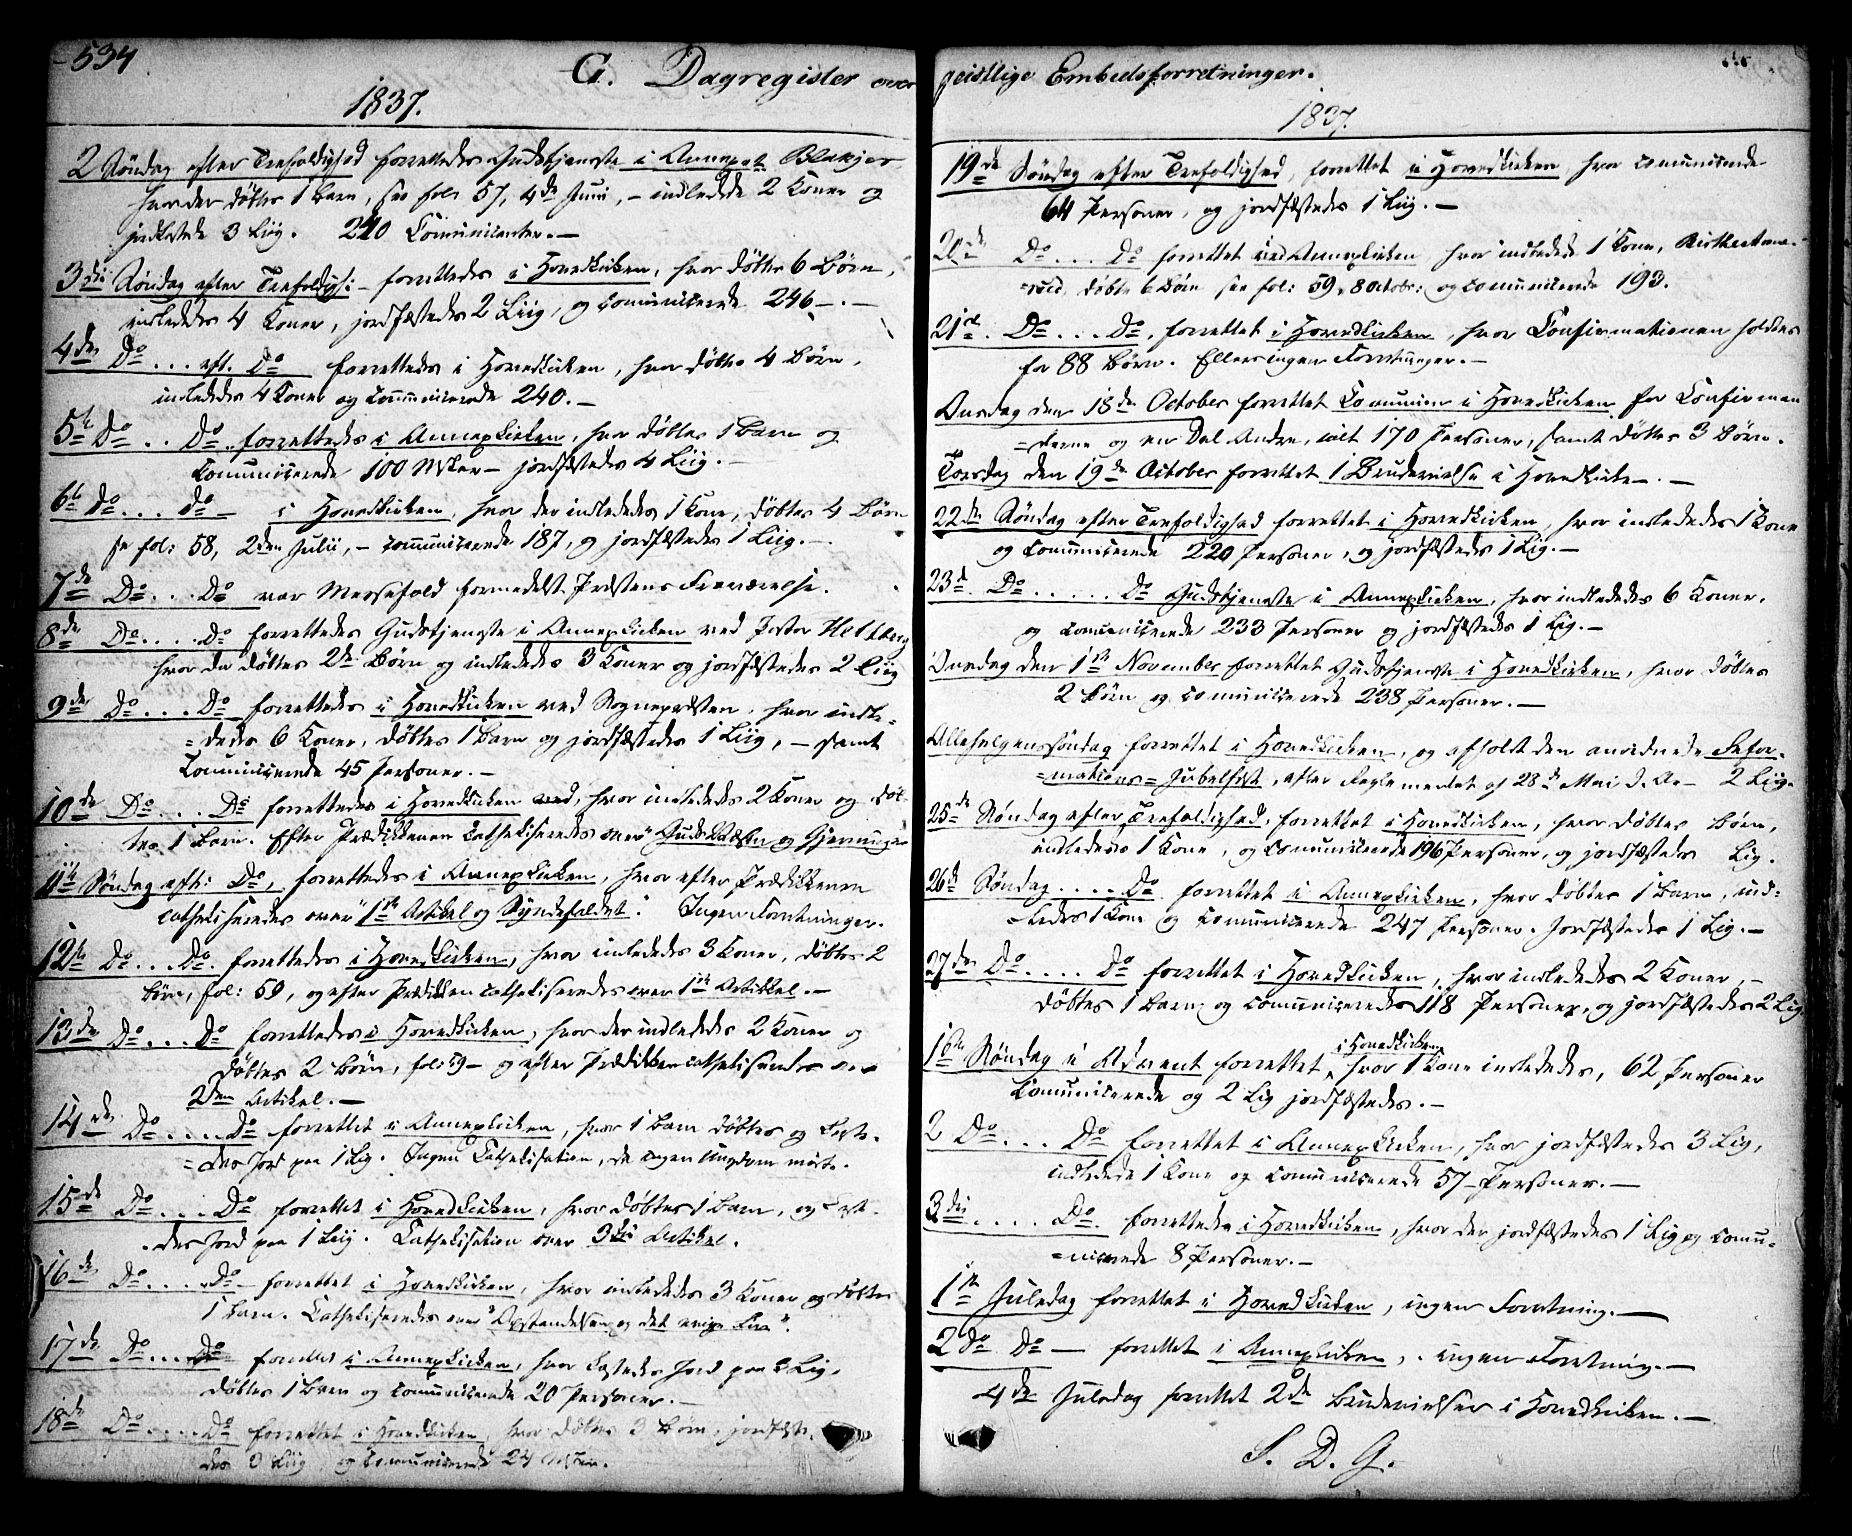 534
G. Dagregister over
1837.
2 Søndag efter Trefoldighed forrettedes Gudstjeneste i Annexet Blakjer
hvor der døbtes 1 Barn, see fol: 57, 4de Juni, – indledede 2 Koner og
jordfæstede 3 Liig. 240 Comunicanter. –
3die Søndag efter Trefoldigh: – forrettedes i Hovedkirken, hvor døbtes 6 Børn,
indledes 4 Koner, jordfæstedes 2 Liig, og Comunicerede 246 –
4de Do ... eft. Do forrettedes i Hovedkirken, hvor døbtes 4 Børn,
indledes 4 Koner og Communicerede 240. –
5te Do .. Do. forrettedes i Annexkirken, hvor døbtes 1 Barn og
Comunicerede 100 Msker – jordfæstedes 4 Liig. –
6te do ... do – i Hovedkirken, hvor der indlededes 1 Kone, døbtes 4 Børn
se fol: 58, 2den Julii, – communicerede 187, og jordfæstedes 1 Liig. –
7de Do ... Do var Messefald formedelst Præstens Fraværelse.
8de Do .... Do forrettedes Gudstjeneste i Annexkirken ved Pastor Heltberg
hvor da døbtes 2de Børn og indlededes 3 Koner og jordfæstedes 2 Liig
9de Do ... Do forrettedes i Hovedkirken ved Sognepræsten, hvor indle=
=dedes 6 Koner, døbtes 1 Barn og jordfæstedes 1 Liig, – samt
Comunicerede 45 Personer. –
10de Do ... Do forrettedes i Hovedkirken ved, hvor indlededes 2 Koner og døb
tes 1 Barn. Efter Prædikkenen Catheliseredes over "Guds Væsen og Gjerninger
11te Søndag eft: Do, forrettedes i Annexkirken, hvor efter Prædikkenen
catheliseredes over "1ste Artikel og Syndefaldet". Ingen Forretninger.
12te Do ... Do. forrettedes i Hovedkirken, hvor indlededes 3 Koner, døbtes 2
Børn, fol: 59, og efter Prædikken catheliseredes over 1ste Artikkel. –
13de Do ... Do forrettedes i Hovedkirken, hvor der indlededes 2 Koner og
døbtes 2 Børn, fol: 59 – og efter Prædikken catheliseredes over
2den Artikel. –
14de Do .... Do forrettet i Annexkirken, hvor 1 Barn døbtes og Caste=
=des Jord paa 1 Lig. Ingen Cathelisation, da ingen Ungdom mødte.
15de Do ... Do forrettet i Hovedkirken, hvor døbtes 1 Barn, og Cast=
des Jord paa 1 Liig. Cathelisation over 3die Artikel.
16de Do .... Do – forrettet i Hovedkirken, hvor indlededes 3 Koner og døbtes
1 Barn. Catheliseredes over "Opstandelsen og det evige Liv".
17de Do ... Do forrettet i Annexkirken, hvor Castedes Jord paa Lig,
døbtes 1 Barn og Communicerede 20 Personer. –
18de Do .... Do forrettet i Hovedkirken, hvor døbtes 3 Børn, jordfæste
des Liig og Communicerede 24
geistlige Embedsforretninger.
1837.
19de Søndag efter Trefoldighed, forrettet i Hovedkirken hvor comunicerede
64 Personer, og jordfæstedes 1 Liig. –
20de Do ... Do forrettet ved Annexkirken hvor indledede 1 Kone,
døbte 6 Børn see fol: 59, 8 Octobr: og communicerede 193.
21de. Do ... Do, forrettet i Hovedkirken, hvor Confirmationen holdtes
for 88 Børn. Ellers ingen Forretninger. –
Onsdag den 18de October forrettet Comunion i Hovedkirken for Confirman
=derne og en Del Andre, ialt 170 Personer, samt døbtes 3 Børn.
Torsdag den 19de October forrettet 1 Brudevielse i Hovedkirke –. –
22de Søndag efter Trefoldighed forrettet i Hovedkirken, hvor indlededes 1 Kone
og Communicerede 220 Personer, og jordfæstedes 1 Lig. –
23d. Do ..... do Gudstjeneste i Annexkirken, hvor indlededes 6 Koner.
og Comunicerede 233 Personer og jordfæstedes 1 Lig. –
Onsdag den 1ste November forrettet Gudstjeneste i Hovedkirken, hvor døbtes
2 Børn og communicerede 238 Personer. –
Allehelgenssøndag forrettet i Hovedkirken, og afholdt den anordnede Refor=
=mations=Jubelfest, efter Reglementet af 28de Mai d. A. – 2 Liig.
25de Søndag efter Trefoldighed, forrettet i Hovedkirken, hvor døbtes Børn,
indledes 1 Kone, og Comunicerede 196 Personer, og jordfæstedes Lig.
26de Søndag .... Do forrettet i Annexkirken, hvor døbtes 1 Barn, ind=
=ledes 1 Kone og Communicerede 247 Personer. Jordfæstedes 1 Lig. –
27de Do .... Do forrettet i Hovedkirken, hvor indlededes 2 Koner, –
døbtes 1 Barn og communiceredes 118 Personer, og jordfæstedes 2 Lig
1ste Søndag i Advent forrettet i Hovedkirken hvor 1 Kone indlededes, 62 Personer
Comunicerede og 2 Lig jordfæstedes. –
2 Do ... Do forrettet i Annexkirken, hvor jordfæstedes 3 Lig,
indledede 1 Kone og communicerede 57 – Personer. –
3die .... Do. forrettedes i Hovedkirken, hvor der jordfæstedes 1 Lig og Comu=
=nicerede 8 Personer. –
1ste Juledag forrettet i Hovedkirken, ingen Forretning. –
2 do Do – forrettet i Annexkirken, . ingen Forretning. –
4de Juledag forrettet 2de Brudevielser i Hovedkirken. –
S. D. G.